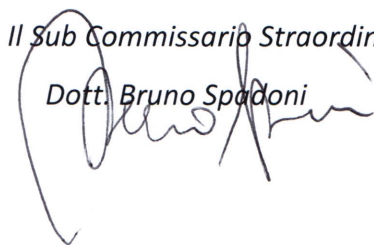 Il Sub Commissario Straordin
Dott. Bruno Spadoni